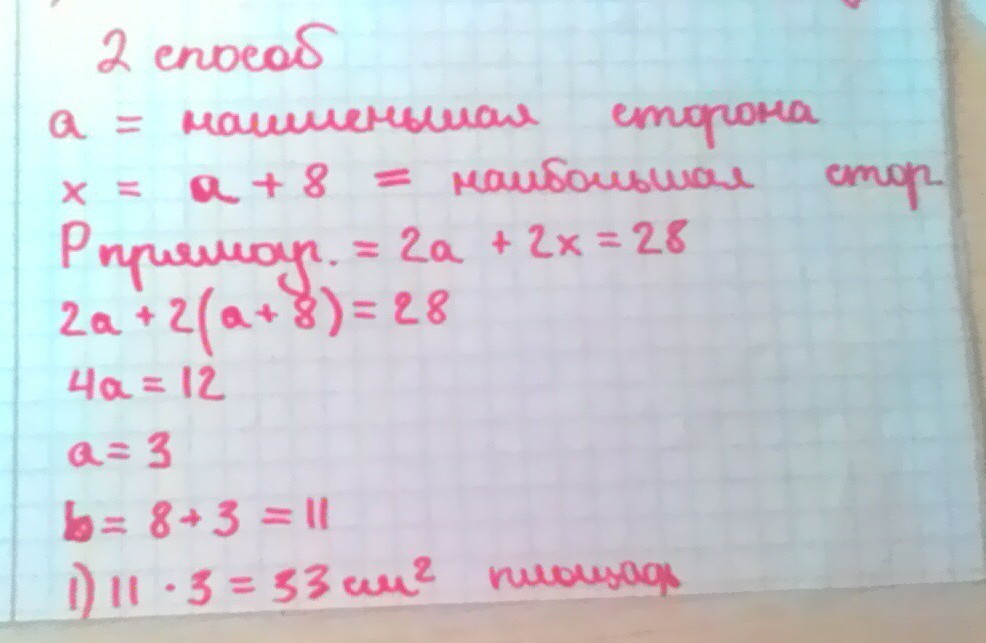 2 способ
a = наименьшая сторона
x = a + 8 = наибольшая стор
Pпрямоуг. = 2a + 2x = 28
2a + 2(a + 8) = 28
4a = 12
a = 3
b = 8 + 3 = 11
1) 11 · 3 = 33 см² площадь